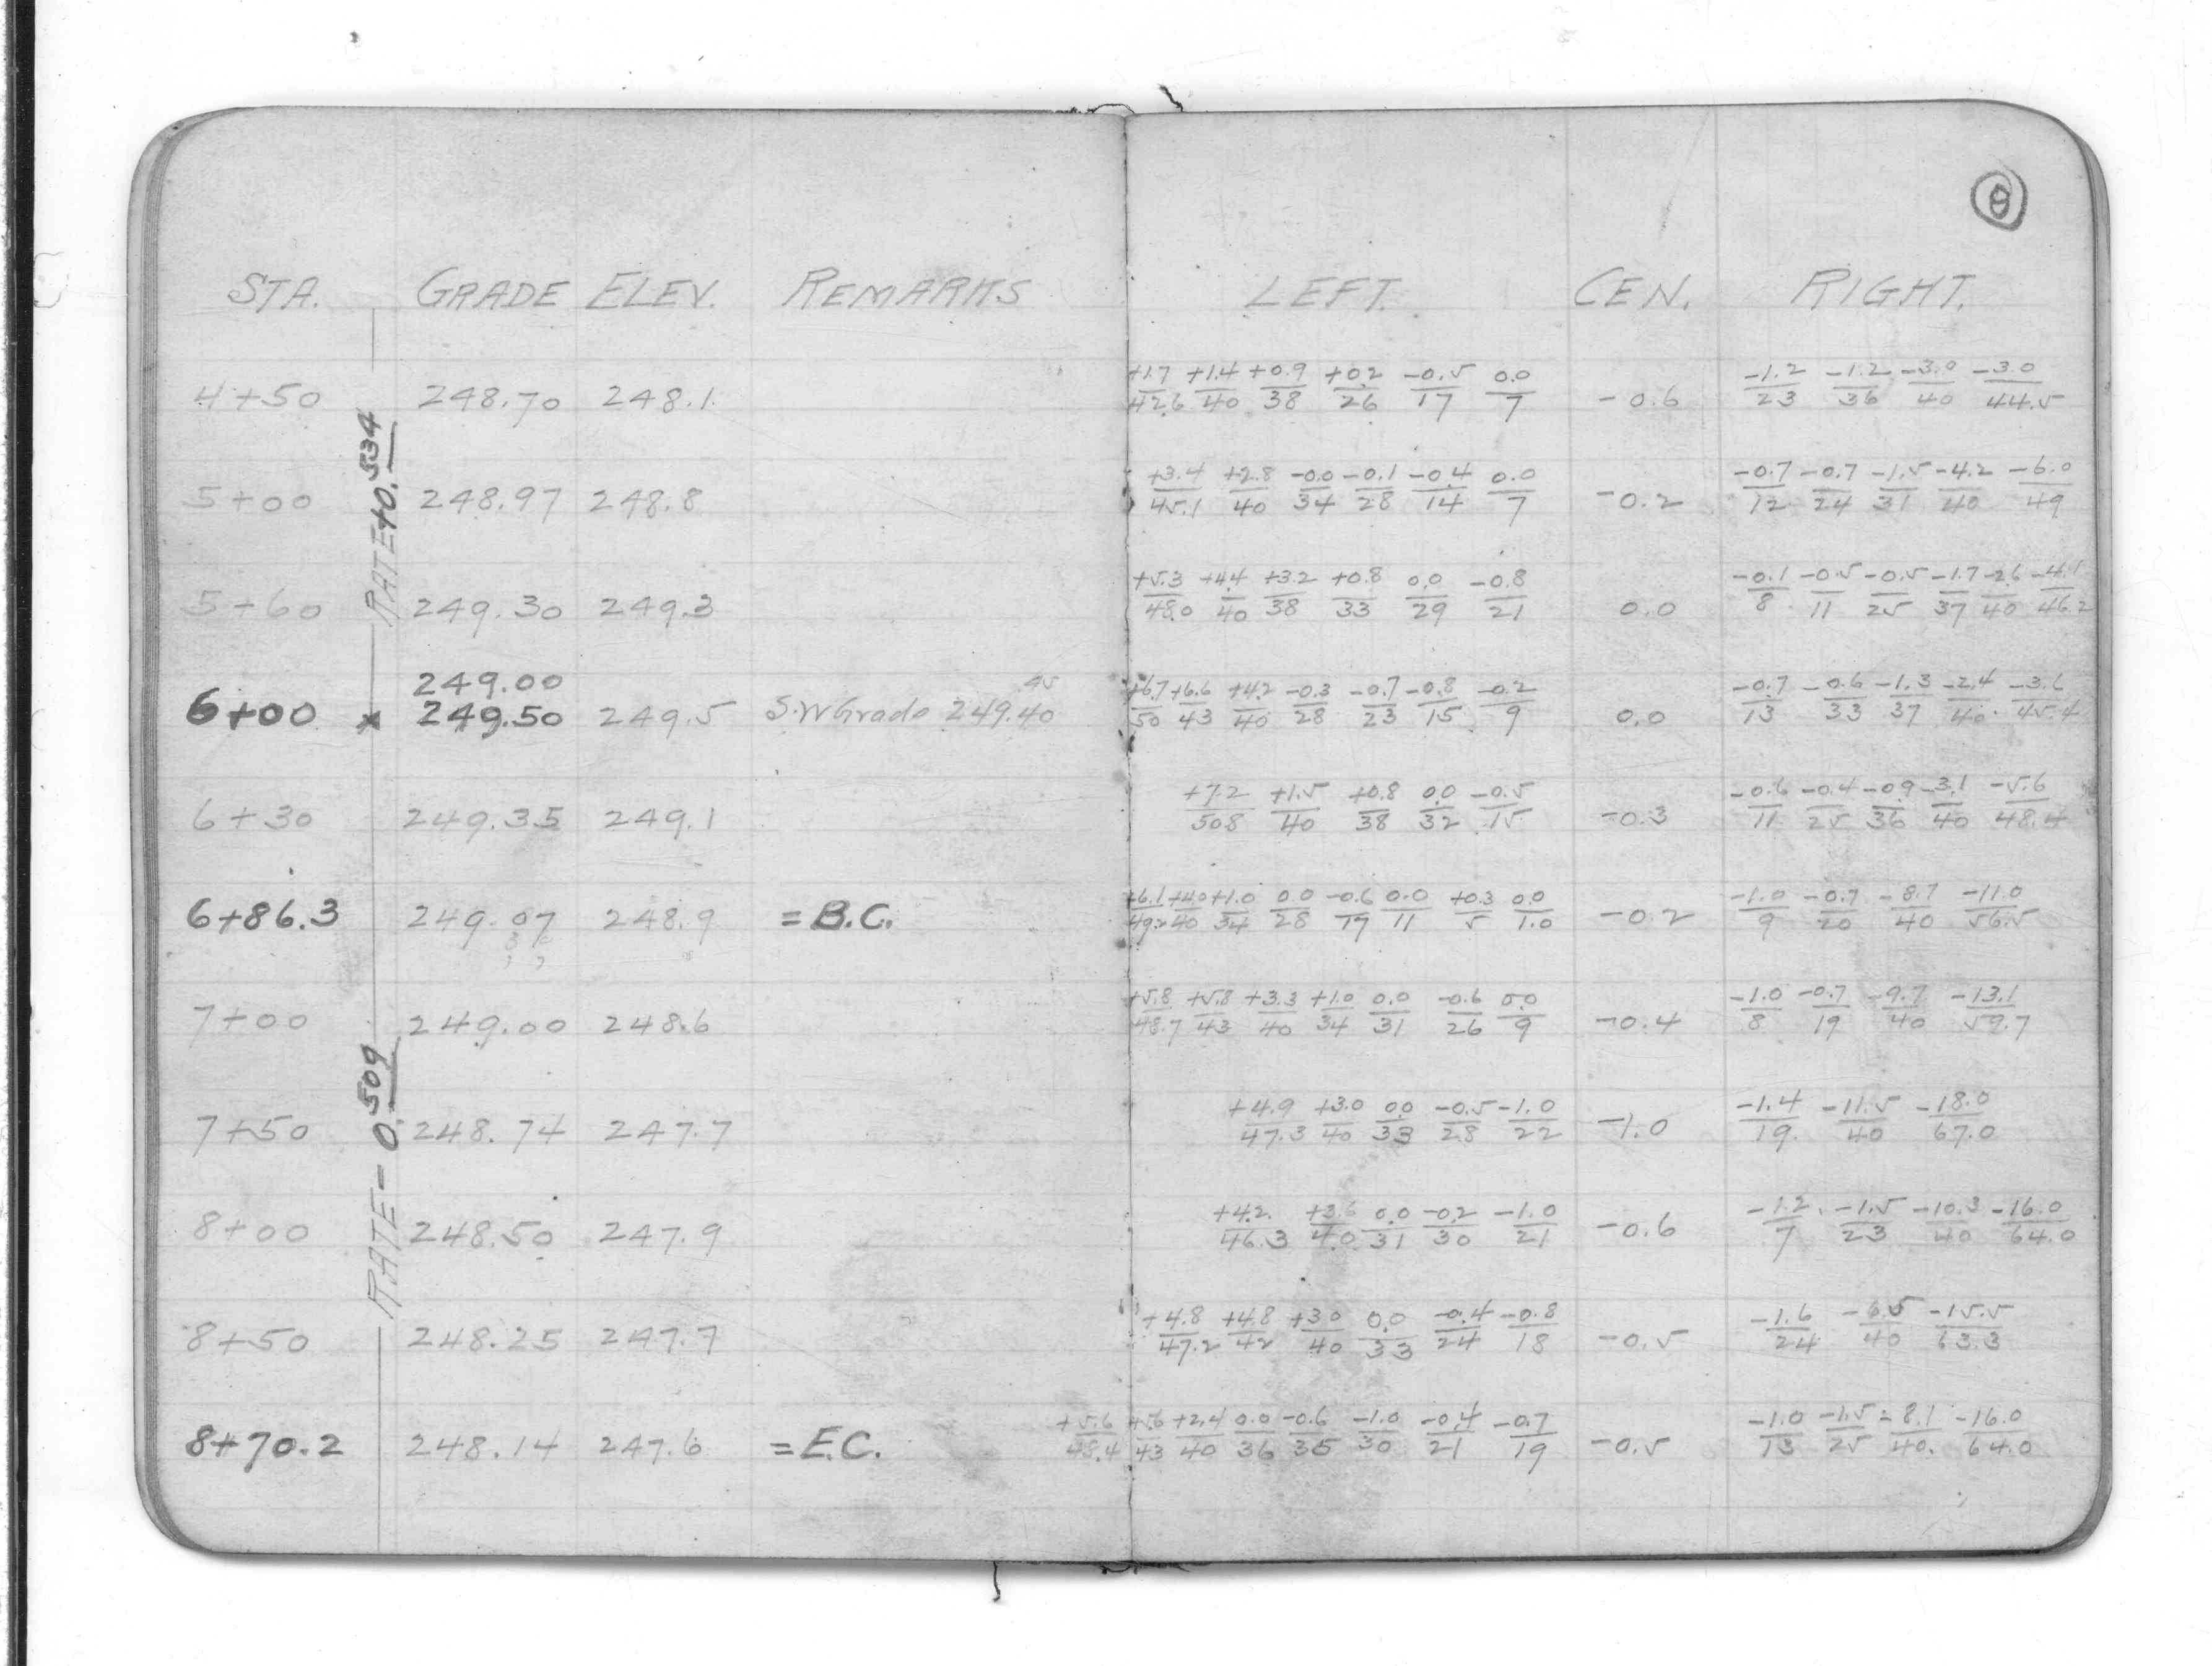 8
STA. GRADE ELEV. REMARKS LEFT. CEN. RIGHT.
RATE +0.534
+1.7 +1.4 +0.9 +0.2 -0.5 0.0 -1.2 -1.2 -3.0 -3.0
4+50 248.70 248.1 42.6 40 38 26 17 7 -0.6 23 36 40 44.5
+3.4 +2.8 -0.0 -0.1 -0.4 0.0 -0.7 -0.7 -1.5 -4.2 -6.0
5+00 248.97 248.8 45.1 40 34 28 14 7 -0.2 12 24 31 40 49
+5.3 +4.4 +3.2 +0.8 0.0 -0.8 -0.1 -0.5 -0.5 -1.7 -2.6 -4.1
5+60 249.30 249.3 48.0 40 38 33 29 21 0.0 8 11 25 37 40 46.2
249.00 45 +6.7 +6.6 +4.2 -0.3 -0.7 -0.8 -0.2 -0.7 -0.6 -1.3 -2.4 -3.6
6+00 x 249.50 249.5 S.W Grade 249.40 50 43 40 28 23 15 9 0.0 13 33 37 40 45.4
+7.2 +1.5 +0.8 0.0 -0.5 -0.6 -0.4 -0.9 -3.1 -5.6
6+30 249.35 249.1 50.8 40 38 32 15 -0.3 11 25 36 40 48.4
+6.1 +4.0 +1.0 0.0 -0.6 0.0 +0.3 0.0 -1.0 -0.7 -8.7 -11.0
6+86.3 249.07 248.9 = B.C. 49.2 40 34 28 19 11 5 1.0 -0.2 9 20 40 56.5
+5.8 +5.8 +3.3 +1.0 0.0 -0.6 0.0 -1.0 -0.7 -9.7 -13.1
7+00 249.00 248.6 48.7 43 40 34 31 26 9 -0.4 8 19 40 59.7
RATE - 0.509
+4.9 +3.0 0.0 -0.5 -1.0 -1.4 -11.5 -18.0
7+50 248.74 247.7 47.3 40 33 28 22 -1.0 19 40 67.0
+4.2 +3.6 0.0 -0.2 -1.0 -1.2 -1.5 -10.3 -16.0
8+00 248.50 247.9 46.3 40 31 30 21 -0.6 7 23 40 64.0
+4.8 +4.8 +3.0 0.0 -0.4 -0.8 -1.6 -6.5 -15.5
8+50 248.25 247.7 47.2 42 40 33 24 18 -0.5 24 40 63.3
+5.6 +5.6 +2.4 0.0 -0.6 -1.0 -0.4 -0.7 -1.0 -1.5 -8.1 -16.0
8+70.2 248.14 247.6 = E.C. 48.4 43 40 36 35 30 21 19 -0.5 13 25 40 64.0